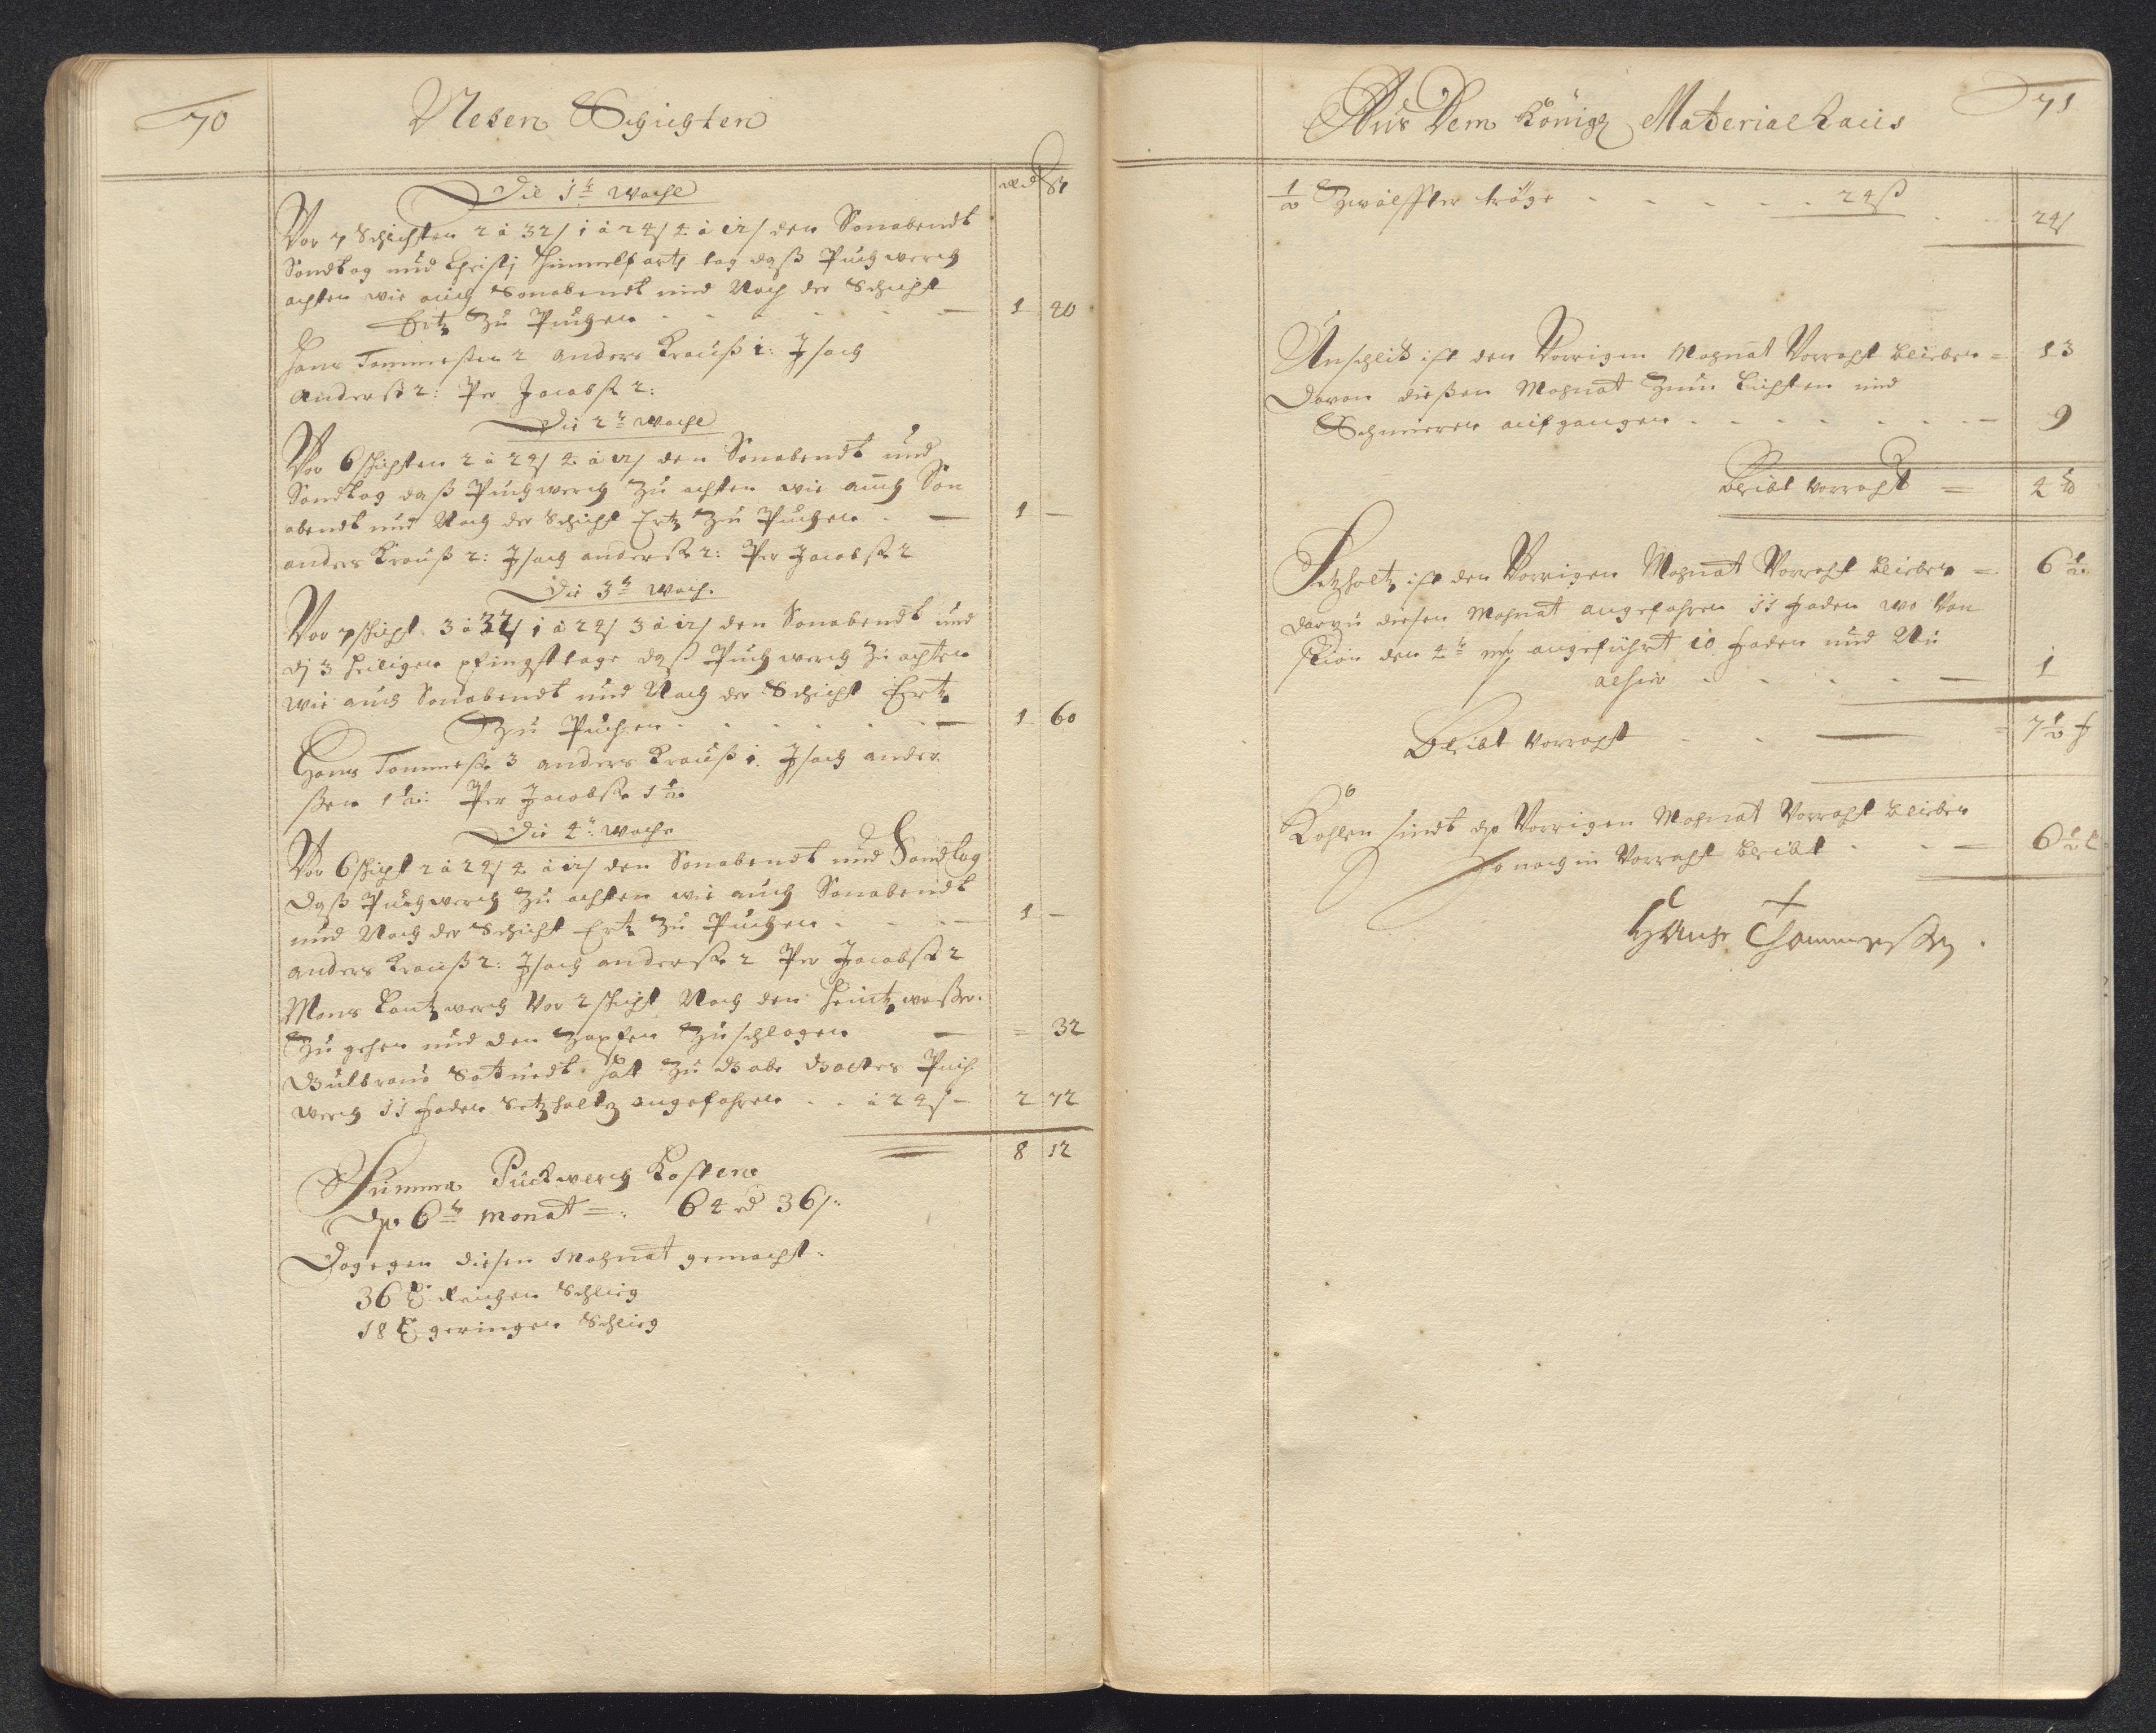 70
Neben Schichten
rd ß
Die 1te Woche
Vor 7 Schichten 2 à 32ß 1 à 24ß 4 à 12ß den Sonabendt
Sondtag und Christj Himmelfartz tag daß Puchwerch
achten wie auch Sonabendt und Nach der Schicht
Ertz Zu Puchen - - - - - — 1 20
Hans Tommeßen 2 anders Krauß 1: Isach
anderß 2: Per Jacobß 2:
Die 2te Woche
Vor 6 schichten 2 à 24ß 4 à 12ß den Sonabendt und
Sondtag daß Puchwerch Zu achten wie auch Son
abendt und Nach der Schicht Ertz Zu Puchen - — 1 —
anders Krauß 2: Isach anderß 2: Per Jacobß 2
Die 3te Woch.
Vor 7 schicht 3 à 32ß 1 à 24ß 3 à 12ß den Sonabendt und
dj 3 heiligen pfingsttage daß Puchwerch Zu achten
wie auch Sonabendt und Nach der Schicht Ertz
Zu Puchen - - - - - - — 1 60
Hans Tommeß 3 anders Krauß 1. Isach ander
ßen 1 1/2: Per Jacobß 1 1/2
Die 4te Woche
Vor 6 schicht 2 à 24ß 4 à 12ß den Sonabendt und Sondtag
daß Puchwerch Zu achten wie auch Sonabendt
und Nach der Schicht Ertz Zu Puchen - - - — 1 —
anders Krauß 2: Isach anderß 2 Per Jacobß 2
Mons Vor 2 schicht Nach den waßer
Zu gehen und den Zapfen Zu schlagen — = 32
Gulbrand hatt Zu Puch
werch 11 Faden Setzholtz angefahren - - à 24ß — 2 72
8 12
Summa Puckwerch Kosten
dß 6te Monat =: 64 rd 36ß:
Dagegen diesen Mohnat gemacht:
36 Reichen Schlieg
18 geringen Schlieg
71
Aus Dem Königl Materialhaus
1/2 Zwölffter tröge - - - - - 24ß - - 24ß
Unschlit ist den Vorrigen Mohnat Vorraht blieben = 13
Davon dießen Mohnat Zum Lichten und
Schmieren aufgangen - - - - - - - — 9
Bleibt Vorraht = 4
Setzholtz ist den Vorrigen Mohnat Vorraht blieben = 6 1/2
darzu diesen Mohnat angefahren 11 Faden wo Von
den 4te angeführt 10 Faden und Nu
alhier - - - - — 1
Bleibt Vorraht - - — = 7 1/2 f
Kohlen sindt dß Vorrigen Mohnat Vorraht blieben
So noch in Vorraht bleibt - - = 6 1/2 L
Hans Thommeßen